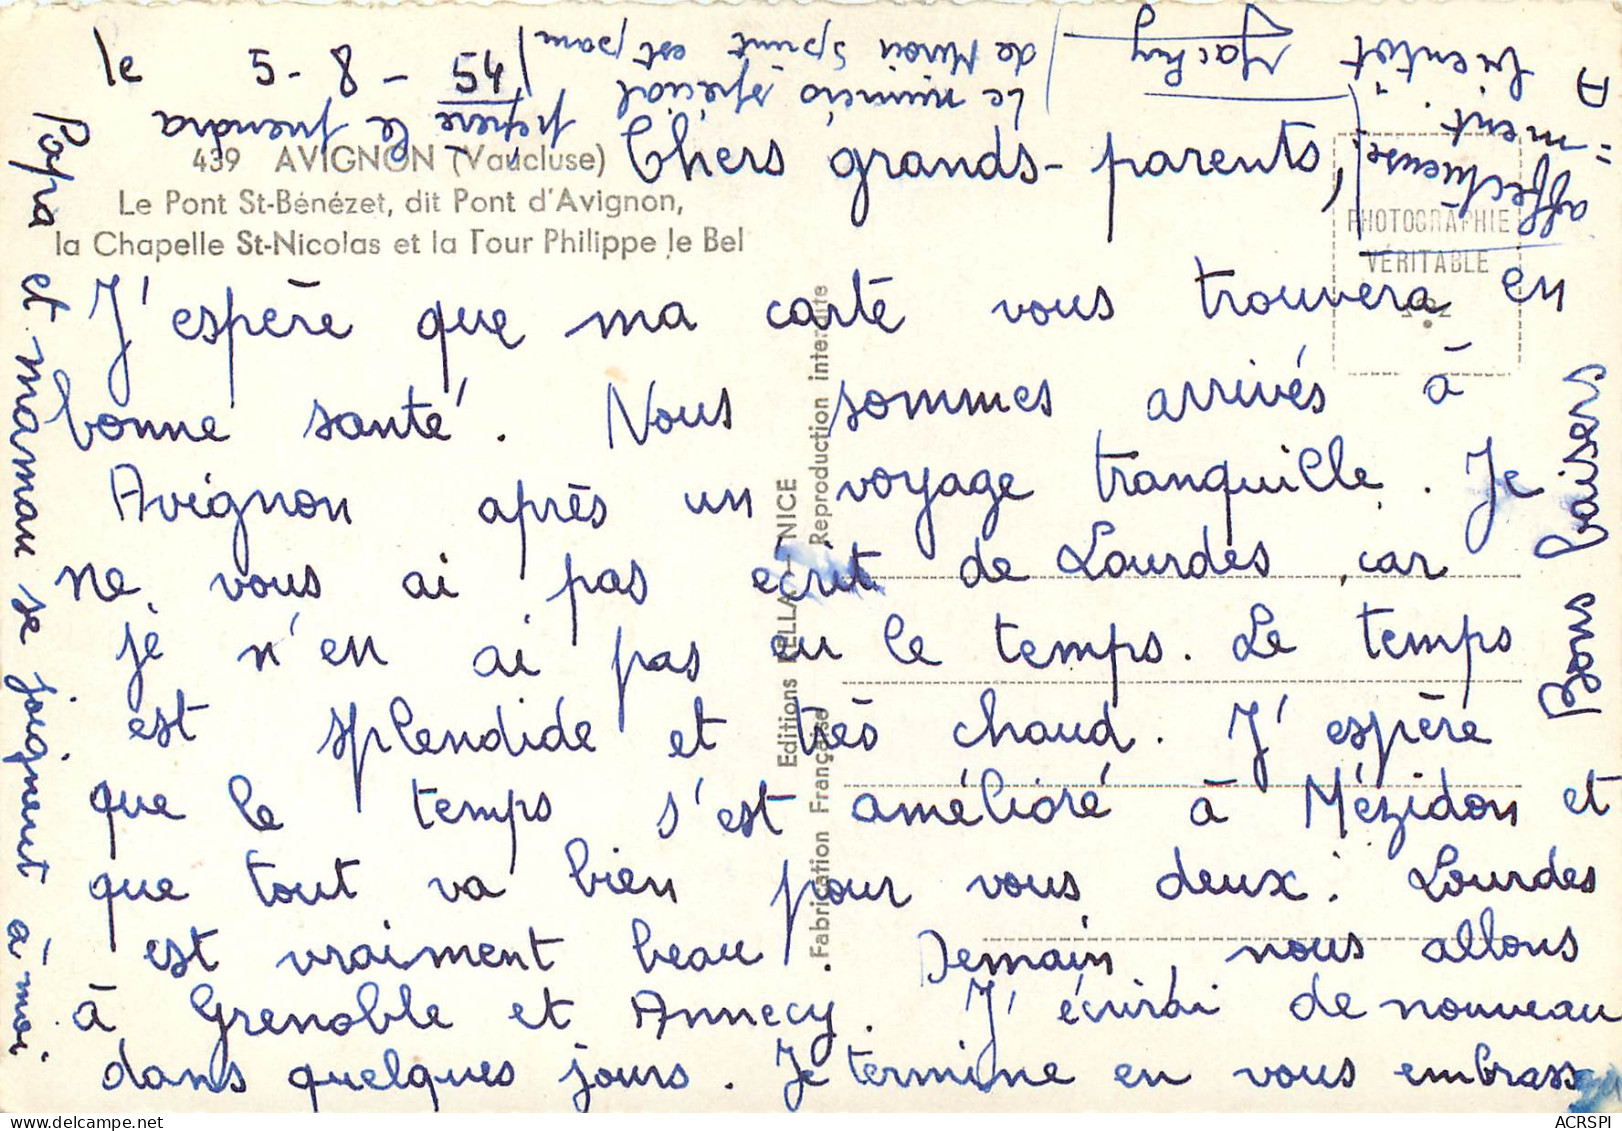 le 5-8-54
439 AVIGNON (Vaucluse)
Le Pont St-Bénézet, dit Pont d'Avignon,
la Chapelle St-Nicolas et la Tour Philippe le Bel
PHOTOGRAPHIE
VÉRITABLE
Editions ELLA - NICE
Fabrication Française Reproduction interdite
Chers grands-parents,
J'espère que ma carte vous trouvera en
bonne santé. Nous sommes arrivés à
Avignon après un voyage tranquille. Je
ne vous ai pas écrit de Lourdes, car
je n'en ai pas eu le temps. Le temps
est splendide et très chaud. J'espère
que le temps s'est amélioré à Mézidon et
que tout va bien pour vous deux. Lourdes
est vraiment beau. Demain, nous allons
à Grenoble et Annecy. J'écrirai de nouveau
dans quelques jours. Je termine en vous embrass
Papa et maman se joignent à moi
baisers
affectueuse
=ment.
A bientôt
Jacky
Le numéro spécial
de Miroir Sprint est paru
pépère le prendra
ACRSPI